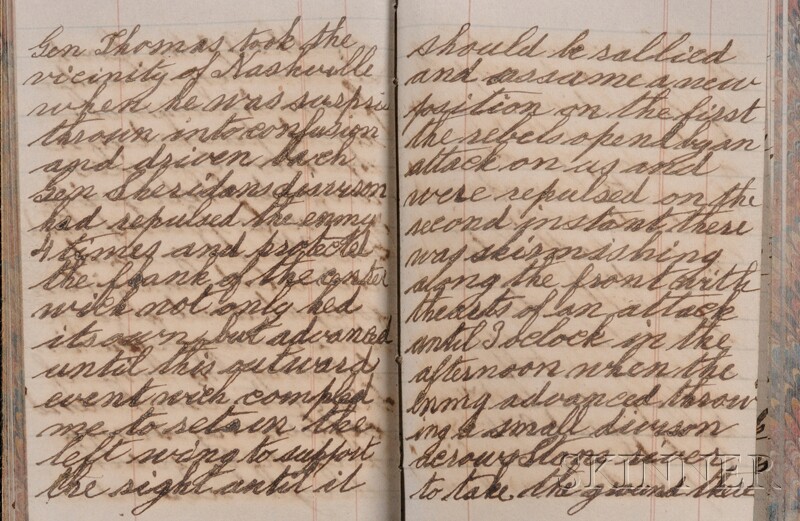 Gen Thomas took the
vicinity of Nashville
when he was surpris
thrown into confusion
and driven back
Gen Sheridans division
had repulsed the enmy
4 times and protected
the flank of the center
wich not only hed
its own but advanced
until this outward
event wich compled
me to retain the
left wing to support
the right until it
should be rallied
and assame a new
position on the first
the rebels opend by an
attack on us and
were repulsed on the
second instant there
was skirmishing
along the front with
thearts of an attack
until 3 oclock in the
afternoon when the
enmy advanced throw
ing a small divison
across Stone river
to take the ground there
SKINNER